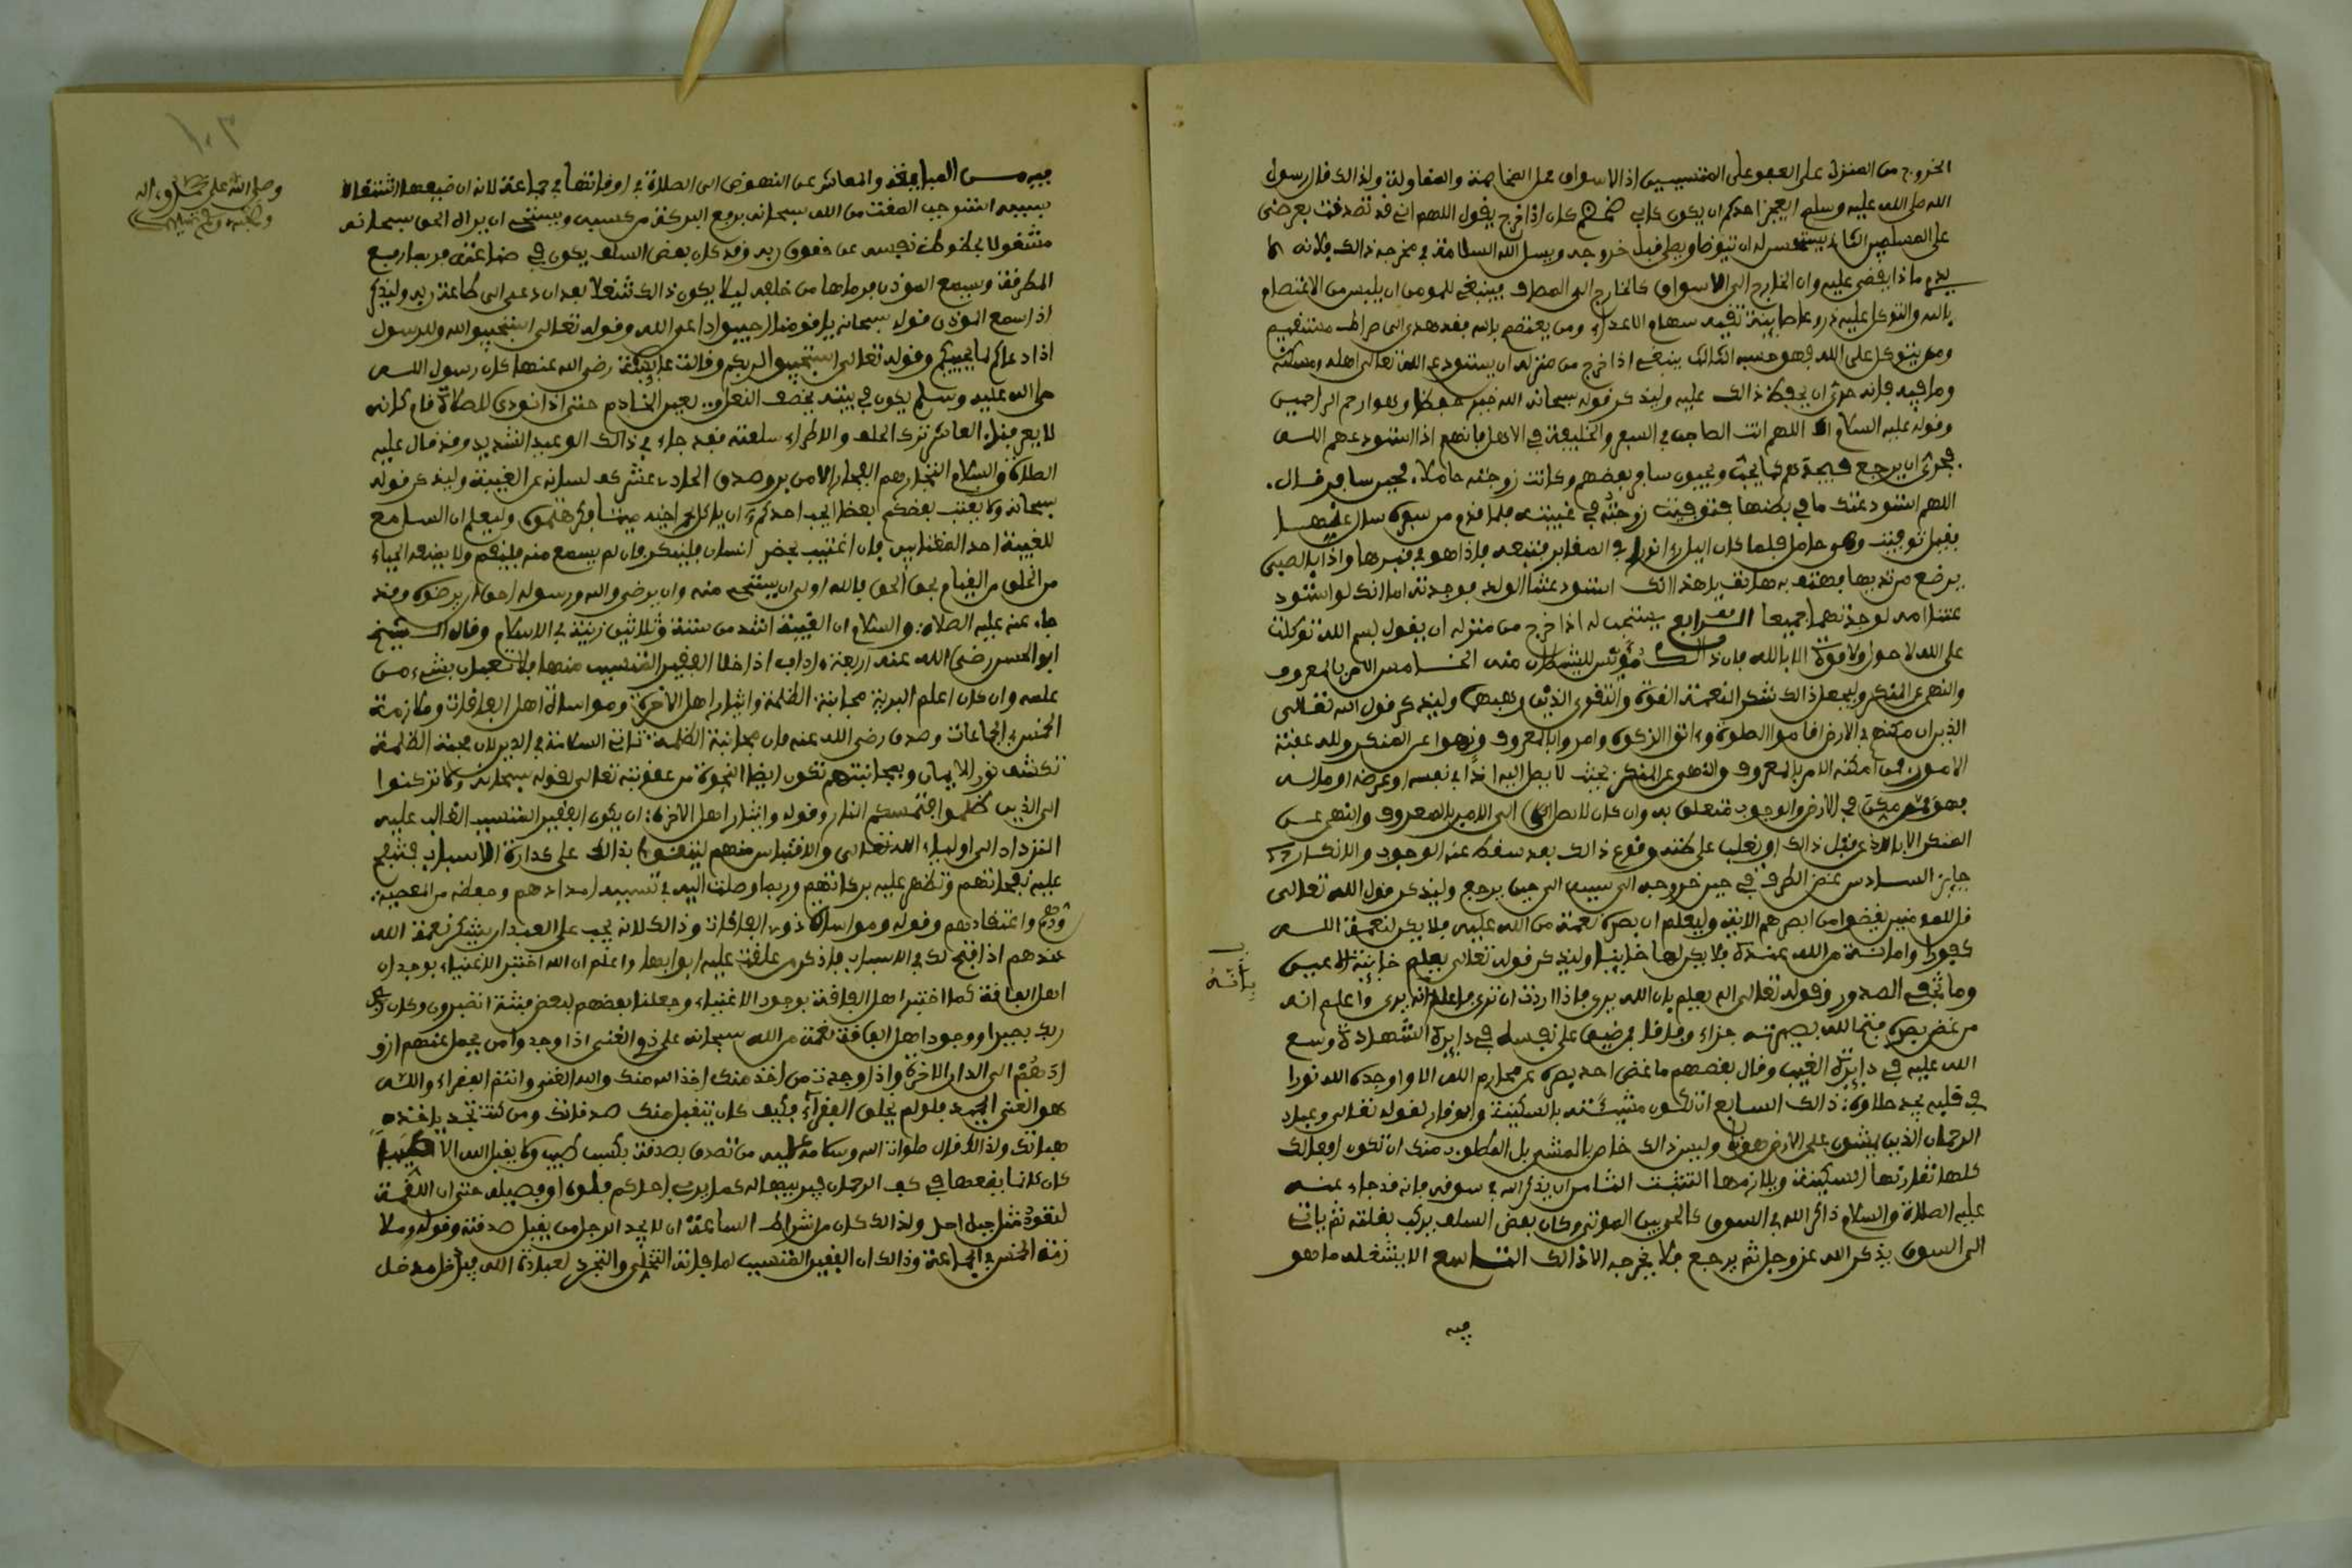 الخروج من المنزل على العفو على المتسببين اذ الاسواق محل المخاصمة والمقاولة ولذالك قال رسول
الله صلى الله عليه وسلم ايعجز احدكم ان يكون كابي ضمضم كان اذا خرج يقول اللهم اني قد تصدقت بعرضي
على المسلمين الثاني يستحسن له ان يتوضا ويصلي قبل خروجه ويسل الله السلامة في مخرجه ذالك فلانه لا
يدري ماذا يقضى عليه وان الخارج الى الاسواق كالخارج الى المصاف فينبغي للمومن ان يلبس من الاعتصام
بالله والتوكل عليه دروعا صاينة تقيه سهام الاعداء ومن يعتصم بالله فقد هدي الى صراط مستقيم
ومن يتوكل على الله فهو حسبه الثالث ينبغي اذا خرج من منزله ان يستودع الله تعالى اهله ومسكنه
وما فيه فانه حري ان يحفظ ذالك عليه وليذكر قوله سبحانه الله خير حفظا وهو ارحم الراحمين
وقوله عليه السلام اللهم انت الصاحب في السفر والخليفة في الاهل فانهم اذا استودعهم الله
فحري ان يرجع فيجدهم كما يحب ويحبون سافر بعضهم وكانت زوجته حاملا فحين سافر قال
اللهم استودعتك ما في بطنها فتوفيت زوجته في غيبته فلما قدم من سفره سال عنها
فقيل توفيت وهي حامل فلما كان اليل راى نورا في المقابر فتبعه فاذا هو في قبرها واذا بالصبي
يرضع من ثديها فهتف به هاتف يا هذا انك استودعتنا الولد فوجدته اما انك لو استود
عتنا امه لوجدتهما جميعا الرابع يستحب له اذا خرج من منزله ان يقول بسم الله توكلت
على الله لا حول ولا قوة الا بالله فان ذالك مويس للشيطان منه الخامس الامر بالمعروف
والنهي عن المنكر وليجعل ذالك شكر النعمة القوة والتقوى الذين وهبهما وليذكر قول الله تعالى
الذين ان مكنهم في الارض اقاموا الصلوة وءاتوا الزكوة وامروا بالمعروف ونهوا عن المنكر ولله عقبة
الامور فمن امكنه الامر بالمعروف والنهي عن المنكر بحيث لا يصل اليه اذا في نفسه او عرضه او ماله
فهو ممن مكن في الارض والوجوب متعلق به وان كان لا يصل الى الامر بالمعروف والنهي عن
المنكر الا بالاذى قبل ذالك او يغلب على ظنه وقوع ذالك بعد سقط عنه الوجوب والانكار
جايز السادس غض الطرف في حين خروجه الى سببه الى حين يرجع وليذكر قول الله تعالى
قل للمومنين يغضوا من ابصرهم الاية وليعلم ان بصره نعمة من الله عليه فلا يكن لنعمة الله
كفورا وامانة من الله عنده فلا يكن لها خاينا وليذكر قوله تعالى يعلم خاينة الاعين
وما تخفي الصدور وقوله تعالى الم يعلم بان الله يرى فاذا اردت ان ترى فاعلم انه يرى واعلم انه
من غض بصره فتح الله بصيرته جزاء وفاقا فمن ضيق على نفسه في دايرة الشهادة وسع
الله عليه في دايرة الغيب وقال بعضهم ما غض احد بصره عن محارم الله الا واوجده الله نورا
في قلبه يجد حلاوة ذالك السابع ان تكون مشيته بالسكينة والوقار لقوله تعالى وعباد
الرحمان الذين يمشون على الارض هونا وليس ذالك خاص بالمشي بل المطلوب منك ان تكون افعالك
كلها تقارنها السكينة ويلازمها التثبت الثامن ان يذكر الله في سوقه فانه قد جاء عنه
عليه الصلاة والسلام ذاكر الله في السوق كالحي بين الموتى وكان بعض السلف يركب بغلته ثم ياتي
الى السوق يذكر الله عز وجل ثم يرجع فلا يخرجه الا ذالك التاسع الا يشغله ما هو
بانه
فيه
١٠٣
وصلى الله على محمد وءاله
وصحبه وسلم
فيه من المبايعة والمعاش عن النهوض الى الصلاة في اوقاتها في جماعة لانه ان ضيعها اشتغالا
بسببه استوجب المقت من الله سبحانه برفع البركة من كسبه ويستحي ان يراه الحق سبحانه
مشغولا بحظوظ نفسه عن حقوق ربه وقد كان بعض السلف يكون في صناعته فربما رفع
المطرقة وسمع الموذن فرماها من خلفه ليلا يكون ذالك شغلا بعد ان دعي الى طاعة ربه وليذكر
اذا سمع الموذن قوله سبحانه يا قومنا اجيبوا داعي الله وقوله تعالى استجيبوا لله وللرسول
اذا دعاكم لما يحييكم وقوله تعالى استجيبوا لربكم وقالت عايشة رضي الله عنها كان رسول الله
صلى الله عليه وسلم يكون في بيته يخصف النعل ويعين الخادم حتى اذا نودي للصلاة قام كانه
لا يعرفنا العاشر ترك الحلف والاطراء سلعته فقد جاء في ذالك الوعيد الشديد وقد قال عليه
الصلاة والسلام التجار هم الفجار الا من بر وصدق الحادي عشر كف لسانه عن الغيبة وليذكر قوله
سبحانه ولا يغتب بعضكم بعضا ايحب احدكم ان ياكل لحم اخيه ميتا فكرهتموه وليعلم ان السامع
للغيبة احد المغتابين فان اغتيب بحضرته انسان فلينكر فان لم يسمع منه فليقم ولا يمنعه الحياء
من الخلق من القيام بحق الحق فالله اولى ان يستحى منه وان يرضى والله ورسوله احق ان يرضوه وقد
جاء عنه عليه الصلاة والسلام ان الغيبة اشد من ستة وثلاثين زنية في الاسلام وقال الشيخ
ابو الحسن رضي الله عنه اربعة ءاداب اذا خلا الفقير المتسبب منها فلا تعبان بشيء من
علمه وان كان اعلم البرية مجانبة الظلمة وايثار اهل الاخرة ومواساة اهل الفاقات وملازمة
الخمس في الجماعات وصدق رضي الله عنه فان مجانبة الظلمة تاتي السلامة في الدين لان صحبة الظلمة
تكشف نور الايمان وبمجانبتهم تكون ايضا النجوة من عقوبته تعالى لقوله سبحانه ولا تركنوا
الى الذين ظلموا فتمسكم النار وقوله وايثار اهل الاخرة ان يكون الفقير المتسبب الغالب عليه
التزداد الى اولياء الله تعالى والاقتباس منهم ليتقوا بذالك على كدارة الاسباب فتفيح
عليه نفحاتهم وتظهر عليه بركاتهم وربما وصلت اليه في تسببه امدادهم وحفظه من المعصية
ودهم واعتقادهم وقوله ومواساة ذوي الفاقات وذالك لانه يجب على العبد ان يشكر نعمة الله
عندهم اذا فتح لك في الاسباب فاذكر من غلقت عليه ابوابها واعلم ان الله اختبر الاغنياء بوجدان
اهل الفاقة كما اختبر اهل الفاقة بوجود الاغنياء وجعلنا بعضهم لبعض فتنة اتصبرون وكان
ربك بصيرا ووجود اهل الفاقة نعمة من الله سبحانه على ذوي الغنى اذا وجدوا من يحمل عنهم ازو
ادهم الى الدار الاخرة واذا وجدت من اخذ منك اخذ الله منك والله الغني وانتم الفقراء والله
هو الغني الحميد فلو لم يخلق الفقراء فكيف كان يتقبل منك صدقاتك ومن كنت تجد ياخذ
هباتك ولذالك قال صلوات الله وسلامه عليه من تصدق بصدقة بكسب طيب ولا يقبل الله الا طيبا
كان كانما يضعها في كف الرحمان فيربيها له كما يربي احدكم فلوه او فصيله حتى ان اللقمة
لتعود مثل جبل احد ولذالك كان من اشراط الساعة ان لا يجد الرجل من يقبل صدقته وقوله وملا
زمة الخمس في الجماعة وذالك ان الفقير المتسبب لما فاته التخلي والتجرد لعبادة الله فلا اقل مدخل